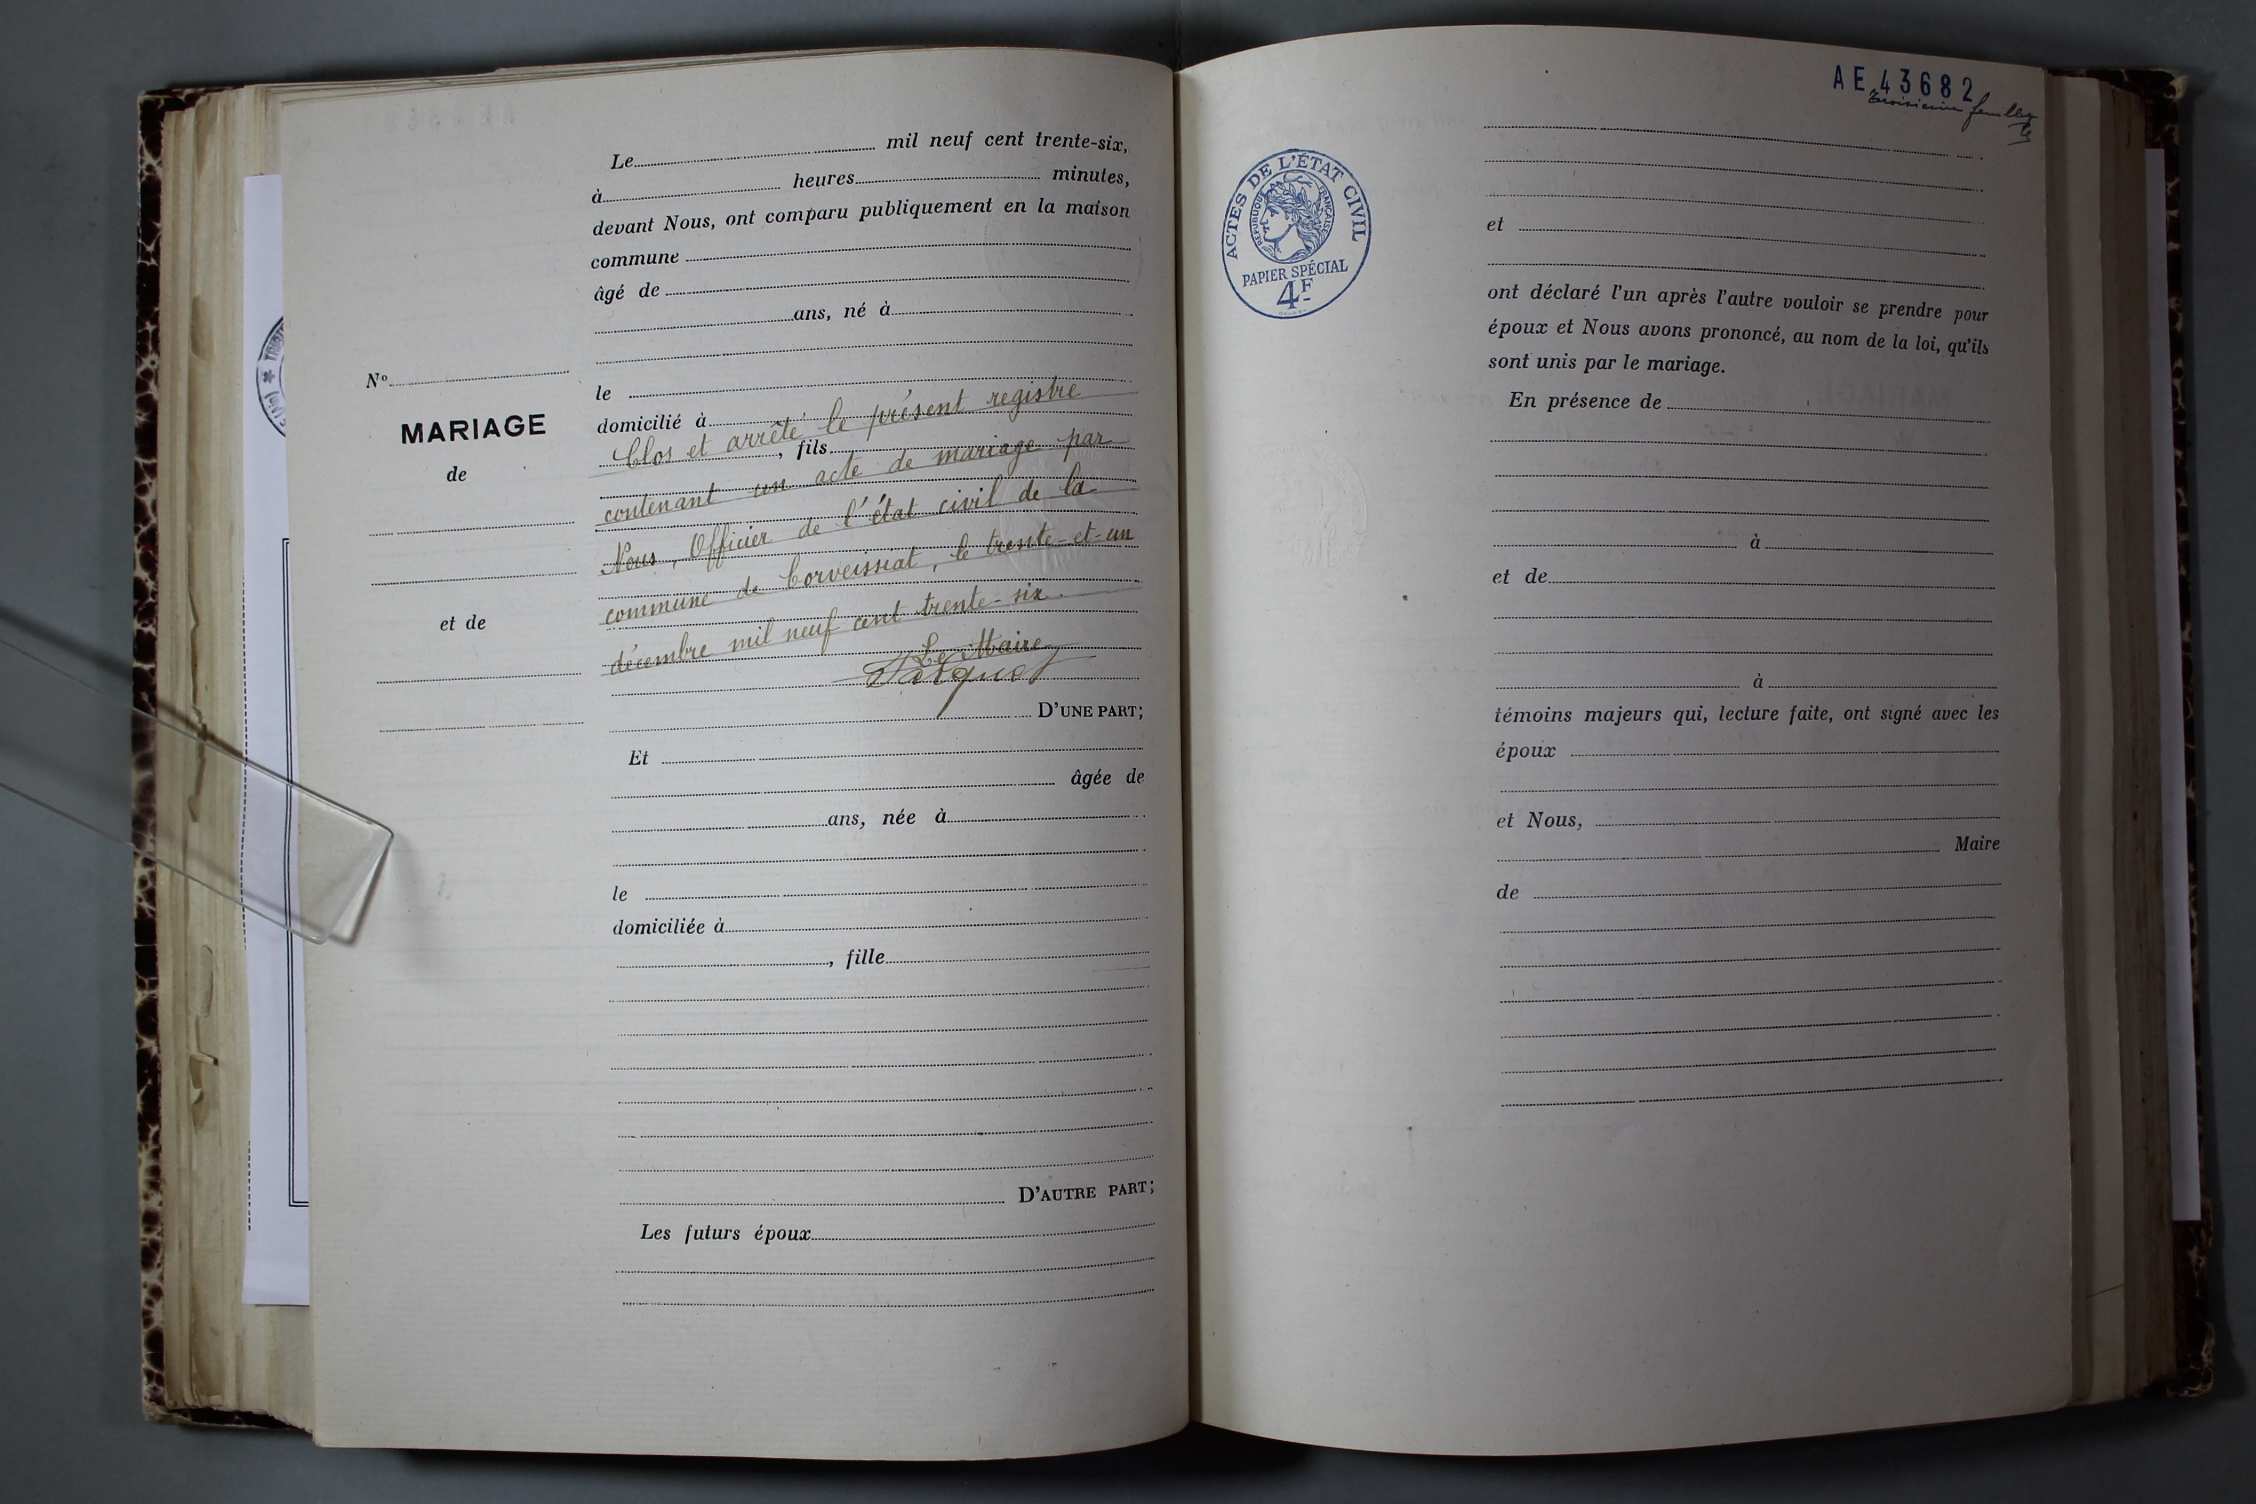 Le mil neuf cent trente-six,
à heures minutes,
devant Nous, ont comparu publiquement en la maison
commune
âgé de
ans, né à
le
domicilié à
Clos et arrêté le présent registre
, fils
contenant un acte de mariage par
Nous, Officier de l'état civil de la
commune de Corveissiat, le trente-et-un
décembre mil neuf cent trente-six.
Le Maire
D'UNE PART;
Et
âgée de
ans, née à
le
domiciliée à
, fille
D'AUTRE PART;
Les futurs époux
No
MARIAGE
de
et de
AE 43682
troisième feuillet
ACTES DE L'ÉTAT CIVIL
RÉPUBLIQUE FRANÇAISE
PAPIER SPÉCIAL
4F
et
ont déclaré l'un après l'autre vouloir se prendre pour
époux et Nous avons prononcé, au nom de la loi, qu'ils
sont unis par le mariage.
En présence de
à
et de
à
témoins majeurs qui, lecture faite, ont signé avec les
époux
et Nous,
Maire
de